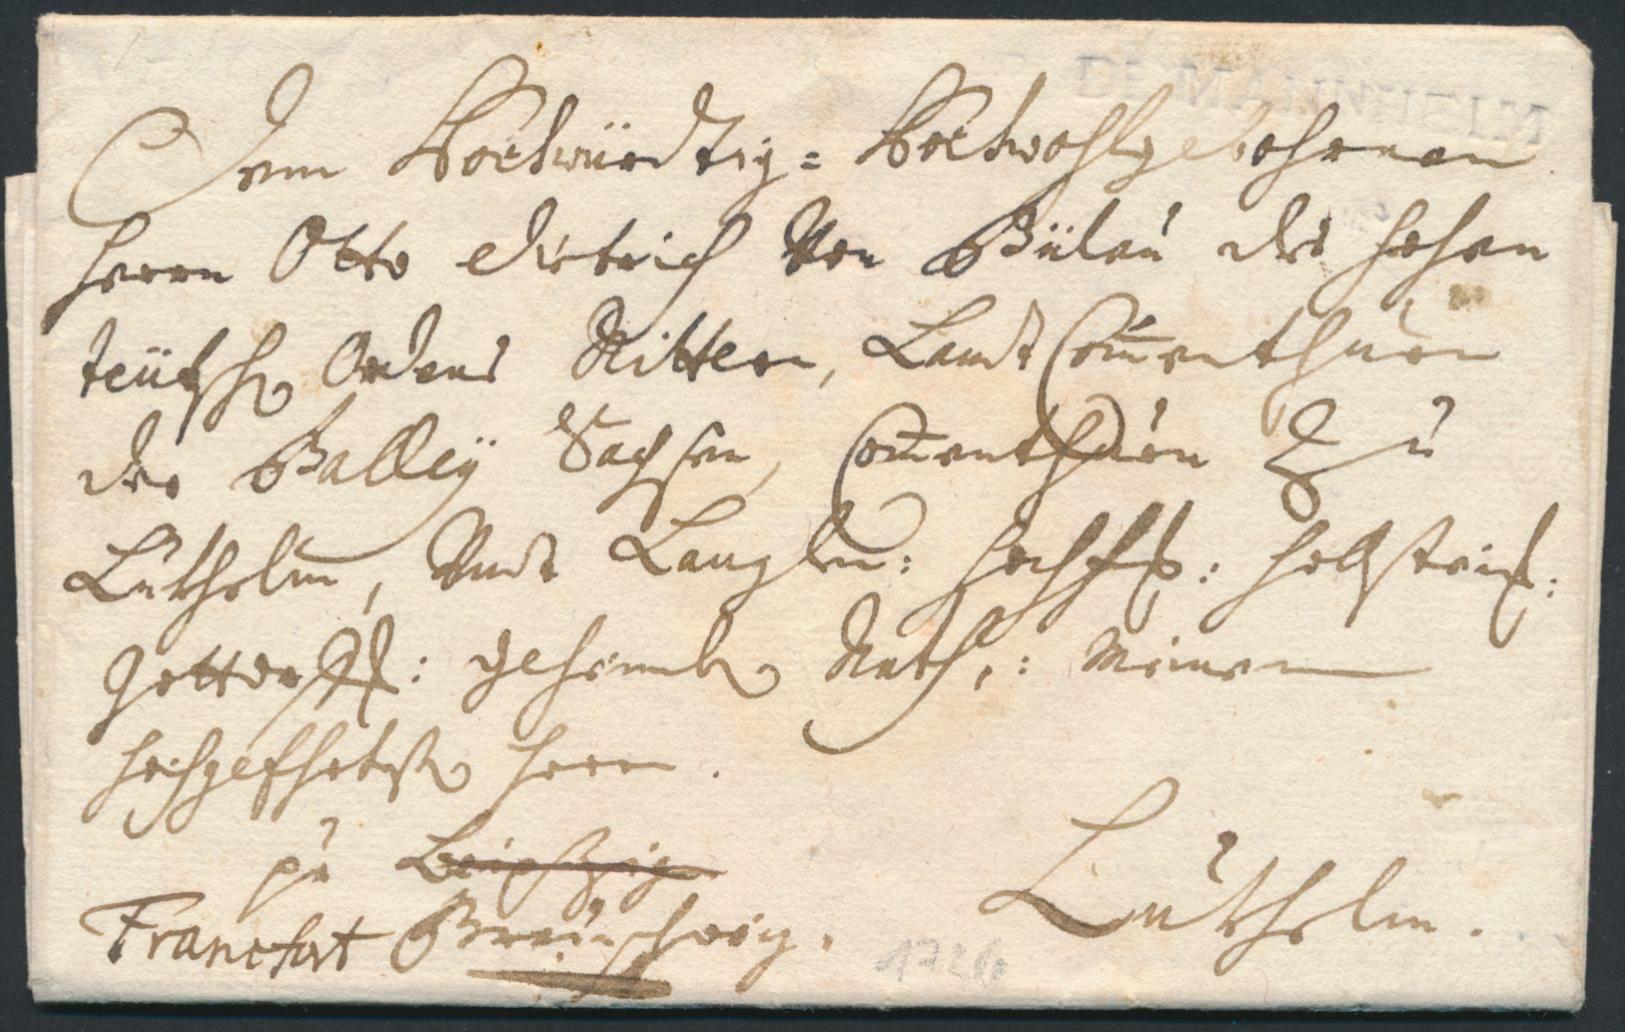 DE MANNHEIM
Dem Hochwürdig= Hochwohlgebohrnen
Herrn Otto Dietrich Von Bülau des hohen
teütschen Ordens Rittern, Landt Com̄enthurn
der Balley Sachsen, Com̄enthurn Zu
Lucklum, Undt Langln: Hochfh:
geheimbten Rath.: Meinem
hochgeEhrtesten Herrn.
pr Leipzig
Francfort Braünschweig.
Lucklum.